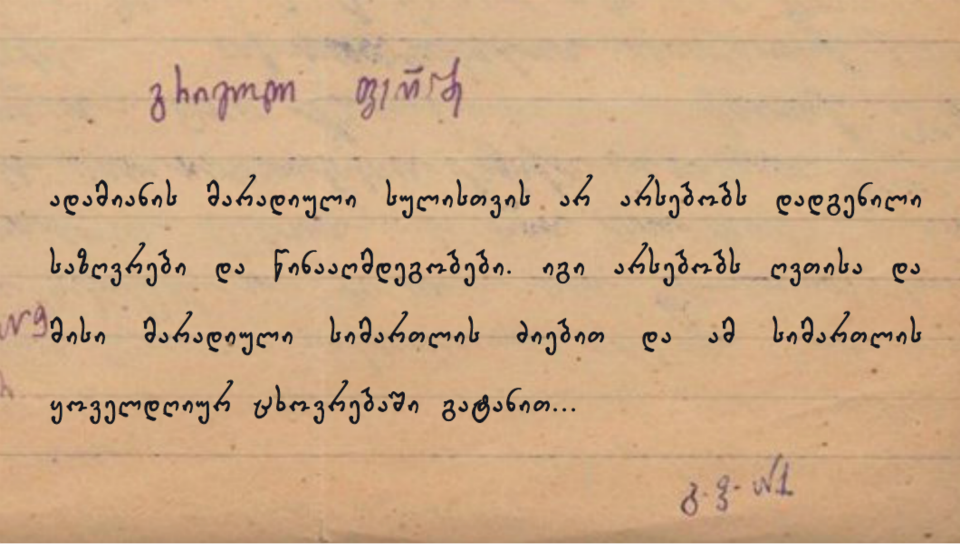 ადამიანის მარადიული სულისთვის არ არსებობს დადგენილი
საზღვრები და წინააღმდეგობები. იგი არსებობს ღვთისა და
მისი მარადიული სიმართლის ძიებით და ამ სიმართლის
ყოველდღიურ ცხოვრებაში გატანით...
გ. ფ. №1